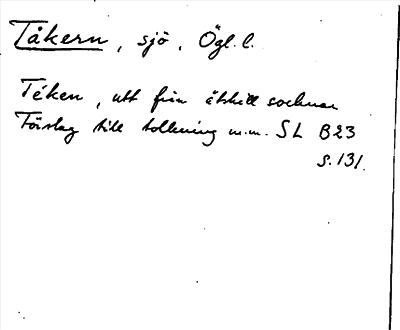 Tåkern, sjö, Ögl. l.
Téken, utt från åtskill socknar
Förslag till tolkning m.m. SL B23
s. 131.